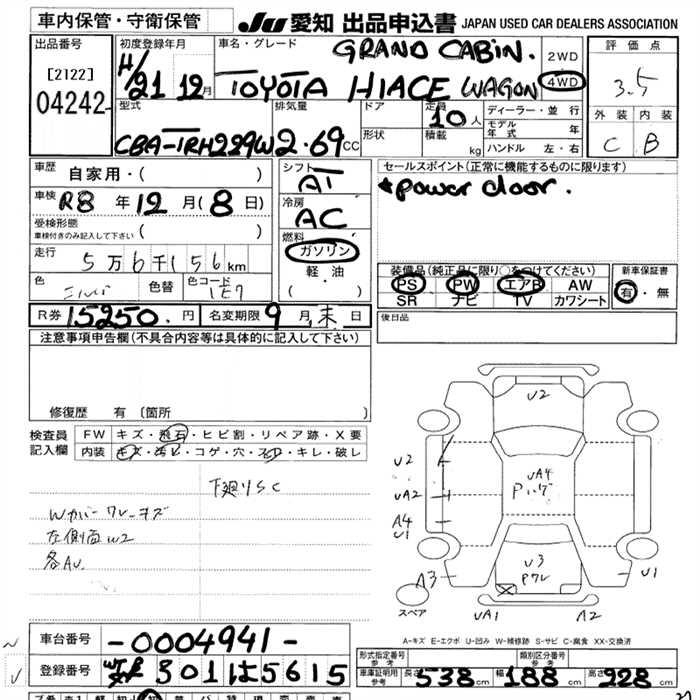 車内保管・守衛保管
JU 愛知 出品申込書 JAPAN USED CAR DEALERS ASSOCIATION
出品番号
[2122]
04242
初度登録年月
H/21 12月
車名・グレード
GRAND CABIN.
TOYOTA HIACE WAGON
2WD
4WD
評価点
3.5
外装 内装
C B
型式
CBA-TRH229W
排気量
2.69cc
ドア
形状
定員
10人
積載
kg
ディーラー・並行
モデル年式 年
ハンドル 左・右
車歴
自家用・( )
車検
R8年12月(8日)
受検形態
車検付きのみ記入して下さい ( )
走行
5万6千156km
色
シルバー
色替
色コード
1E7
シフト
AT
冷房
AC
燃料
ガソリン
軽・油
( ・ )
セールスポイント(正常に機能するものに限ります)
★power door.
装備品(純正品に限り○をつけてください)
PS PW エアB AW
SR ナビ TV カワシート
新車保証書
有・無
R券 15250.円
名変期限 9月末日
後日品
注意事項申告欄(不具合内容等は具体的に記入して下さい)
修復歴 有 〔箇所 〕
検査員記入欄
FW キズ・飛石・ヒビ割・リペア跡・X要
内装 キズ・汚レ・コゲ・穴・スレ・キレ・破レ
下廻りSC
Wカバーワレ・キズ
左側面W2
各AU
U2
U2
UA2
A4
U1
A3
UA4
U3
Pワレ
U1
UA1
A2
スペア
A-キズ E-エクボ U-凹み W-補修跡 S-サビ C-腐食 XX-交換済
車台番号
-0004941-
登録番号
301は5615
形式指定番号
参考
類別区分番号
参考
車庫証明用
参考
長さ 538cm 幅 188cm 高さ 928cm